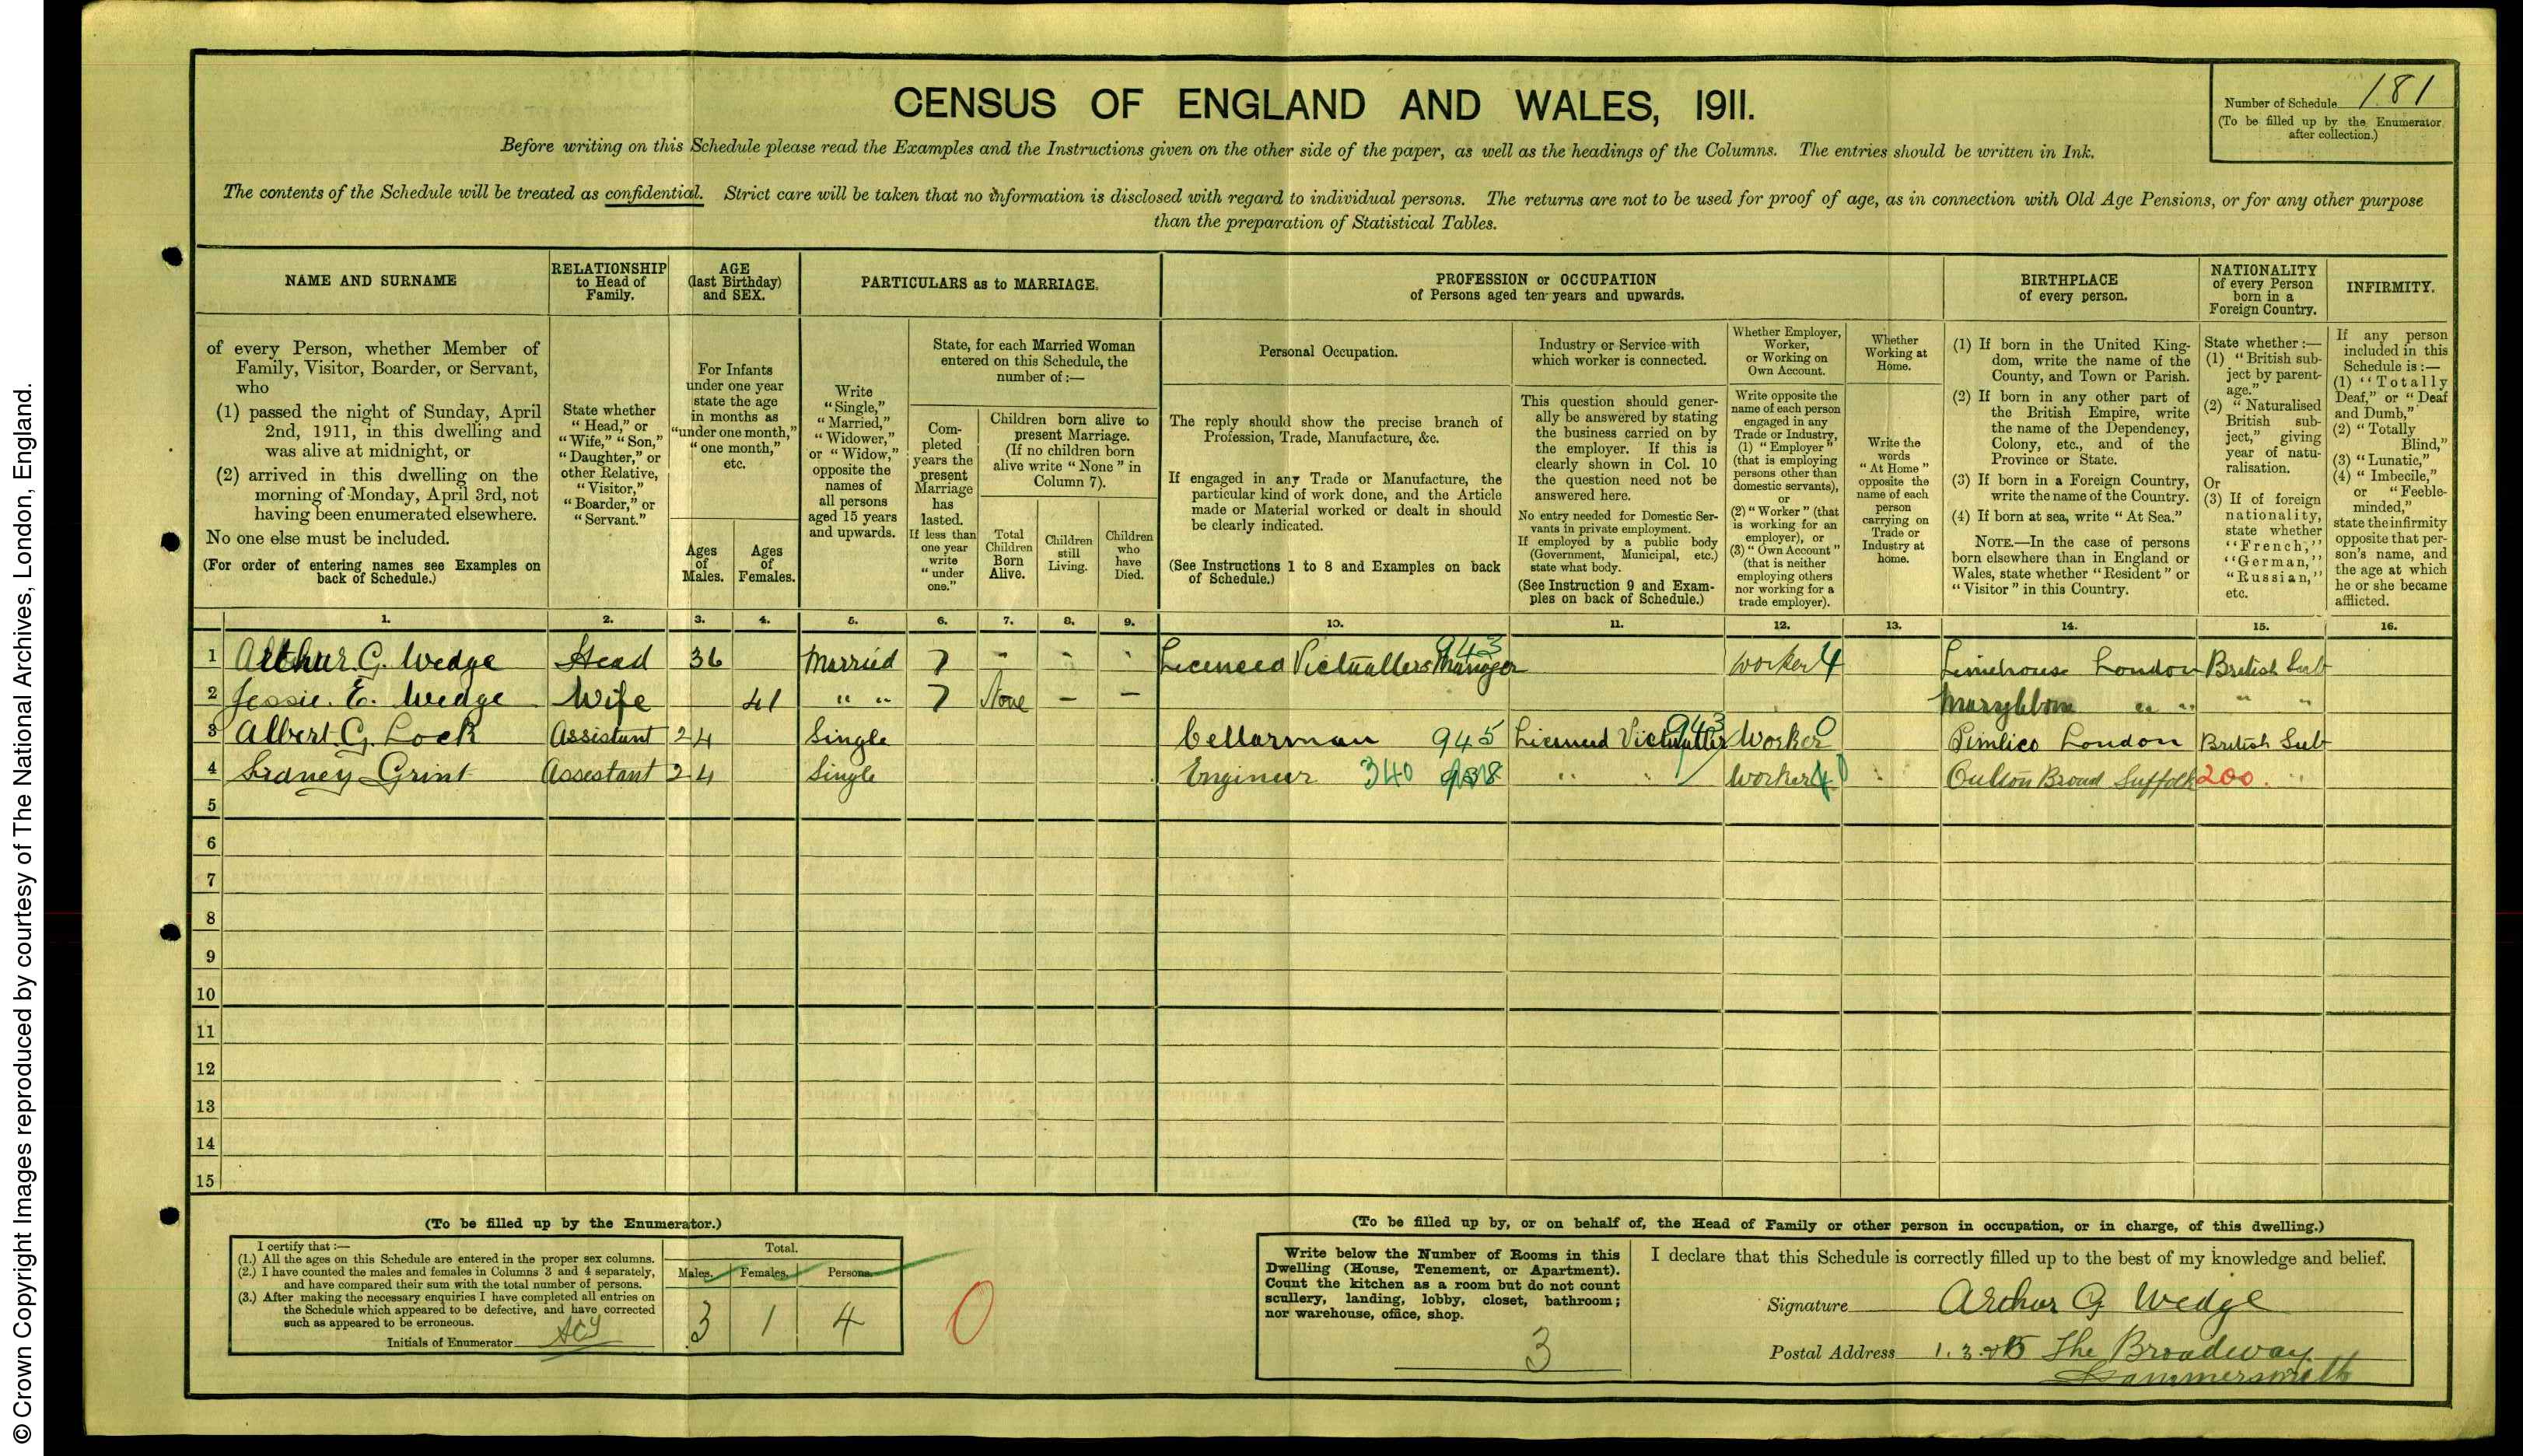 © Crown Copyright Images reproduced by courtesy of The National Archives, London, England.
CENSUS OF ENGLAND AND WALES, 1911.
Number of Schedule 181
(To be filled up by the Enumerator after collection.)
Before writing on this Schedule please read the Examples and the Instructions given on the other side of the paper, as well as the headings of the Columns. The entries should be written in Ink.
The contents of the Schedule will be treated as confidential. Strict care will be taken that no information is disclosed with regard to individual persons. The returns are not to be used for proof of age, as in connection with Old Age Pensions, or for any other purpose
than the preparation of Statistical Tables.
NAME AND SURNAME
RELATIONSHIP
to Head of
Family.
AGE
(last Birthday)
and SEX.
PARTICULARS as to MARRIAGE.
PROFESSION or OCCUPATION
of Persons aged ten years and upwards.
BIRTHPLACE
of every person.
NATIONALITY
of every Person
born in a
Foreign Country.
INFIRMITY.
of every Person, whether Member of
Family, Visitor, Boarder, or Servant,
who
(1) passed the night of Sunday, April
2nd, 1911, in this dwelling and
was alive at midnight, or
(2) arrived in this dwelling on the
morning of Monday, April 3rd, not
having been enumerated elsewhere.
No one else must be included.
(For order of entering names see Examples on
back of Schedule.)
State whether
"Head," or
"Wife," "Son,"
"Daughter," or
other Relative,
"Visitor,"
"Boarder," or
"Servant."
For Infants
under one year
state the age
in months as
"under one month,"
"one month,"
etc.
Ages
of
Males.
Ages
of
Females.
Write
"Single,"
"Married,"
"Widower,"
or "Widow,"
opposite the
names of
all persons
aged 15 years
and upwards.
State, for each Married Woman
entered on this Schedule, the
number of :—
Com-
pleted
years the
present
Marriage
has
lasted.
If less than
one year
write
"under
one."
Children born alive to
present Marriage.
(If no children born
alive write "None" in
Column 7).
Total
Children
Born
Alive.
Children
still
Living.
Children
who
have
Died.
Personal Occupation.
The reply should show the precise branch of
Profession, Trade, Manufacture, &c.
If engaged in any Trade or Manufacture, the
particular kind of work done, and the Article
made or Material worked or dealt in should
be clearly indicated.
(See Instructions 1 to 8 and Examples on back
of Schedule.)
Industry or Service with
which worker is connected.
This question should gener-
ally be answered by stating
the business carried on by
the employer. If this is
clearly shown in Col. 10
the question need not be
answered here.
No entry needed for Domestic Ser-
vants in private employment.
If employed by a public body
(Government, Municipal, etc.)
state what body.
(See Instruction 9 and Exam-
ples on back of Schedule.)
Whether Employer,
Worker,
or Working on
Own Account.
Write opposite the
name of each person
engaged in any
Trade or Industry,
(1) "Employer"
(that is employing
persons other than
domestic servants),
or
(2) "Worker" (that
is working for an
employer), or
(3) "Own Account"
(that is neither
employing others
nor working for a
trade employer).
Whether
Working at
Home.
Write the
words
"At Home"
opposite the
name of each
person
carrying on
Trade or
Industry at
home.
(1) If born in the United King-
dom, write the name of the
County, and Town or Parish.
(2) If born in any other part of
the British Empire, write
the name of the Dependency,
Colony, etc., and of the
Province or State.
(3) If born in a Foreign Country,
write the name of the Country.
(4) If born at sea, write "At Sea."
NOTE.—In the case of persons
born elsewhere than in England or
Wales, state whether "Resident" or
"Visitor" in this Country.
State whether :—
(1) "British sub-
ject by parent-
age."
(2) "Naturalised
British sub-
ject," giving
year of natu-
ralisation.
Or
(3) If of foreign
nationality,
state whether
"French,"
"German,"
"Russian,"
etc.
If any person
included in this
Schedule is :—
(1) "Totally
Deaf," or "Deaf
and Dumb,"
(2) "Totally
Blind,"
(3) "Lunatic,"
(4) "Imbecile,"
or "Feeble-
minded,"
state the infirmity
opposite that per-
son's name, and
the age at which
he or she became
afflicted.
1. 2. 3. 4. 5. 6. 7. 8. 9. 10. 11. 12. 13. 14. 15. 16.
1 Arthur G. Wedge Head 36 Married 7 - - - Licenced Victuallers Manager 943 Worker 4 Limehouse London British Sub
2 Jessie. E. Wedge Wife 41 " " 7 None — — Marylebone " " " "
3 Albert. G. Lock Assistant 24 Single Cellarman 945 Licensed Victualler 943 Worker 0 Pimlico London British Sub
4 Sidney Grint Assestant 24 Single Engineer 340 " " Worker Oulton Broad Suffolk 200. "
5
6
7
8
9
10
11
12
13
14
15
(To be filled up by the Enumerator.)
I certify that :—
(1.) All the ages on this Schedule are entered in the proper sex columns.
(2.) I have counted the males and females in Columns 3 and 4 separately,
and have compared their sum with the total number of persons.
(3.) After making the necessary enquiries I have completed all entries on
the Schedule which appeared to be defective, and have corrected
such as appeared to be erroneous.
Initials of Enumerator
Total.
Males. Females. Persons.
3 1 4
0
(To be filled up by, or on behalf of, the Head of Family or other person in occupation, or in charge, of this dwelling.)
Write below the Number of Rooms in this
Dwelling (House, Tenement, or Apartment).
Count the kitchen as a room but do not count
scullery, landing, lobby, closet, bathroom;
nor warehouse, office, shop.
3
I declare that this Schedule is correctly filled up to the best of my knowledge and belief.
Signature Arthur G Wedge
Postal Address 1. 3. The Broadway
Hammersmith